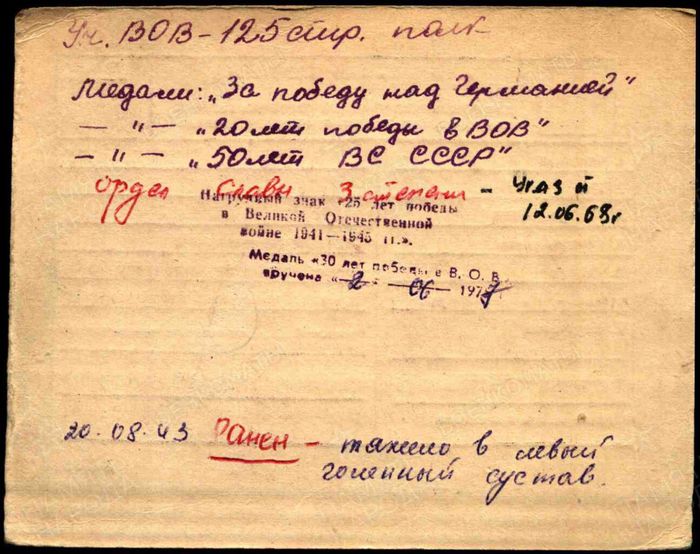 Уч. ВОВ - 125 стр. полк
Медали: „За победу над Германией"
— " — „20 лет победы в ВОВ"
— " — „50 лет ВС СССР"
орден Славы 3 степени - Указ
12.06.68г
Нагрудный знак «25 лет победы
в Великой Отечественной
войне 1941—1945 гг.».
Медаль «30 лет победы в В. О. В.
вручена «2» 06 1977
20.08.43 Ранен - тяжело в левый
голенный сустав.